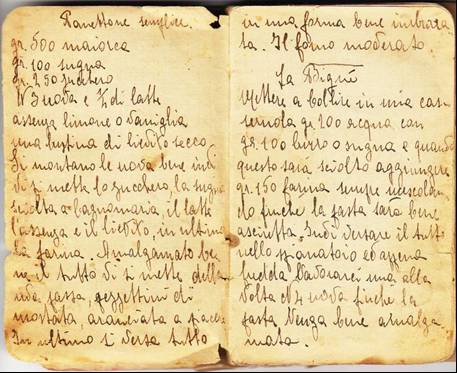 Panettone semplice.
gr. 500 maiorca
gr. 100 sugna
gr. 250 zucchero
N 3 uova e ½ di latte
essenza limone o vaniglia
una bustina di lievito secco
Si montano le uova bene indi
vi si mette lo zucchero, la sugna
sciolta a bagnomaria, il latte
l'essenza e il lievito, in ultimo
la farina. Amalgamato be
ne il tutto vi si mette della
uva passa, pezzettini di
mostata, aranciata a piacere
In ultimo si versa tutto
in una forma bene imburra
ta. Il forno moderato.
La Bignè
Mettere a bollire in una cas
seruola gr. 200 acqua con
gr. 100 burro o sugna e quando
questo sarà sciolto aggiungere
gr. 150 farina sempre mescolan
do finché la pasta sarà bene
asciutta. Indi versare il tutto
nello spianatoio ed appena
fredda lavorarci una alla
volta N 4 uova finché la
pasta venga bene amalga
mata.